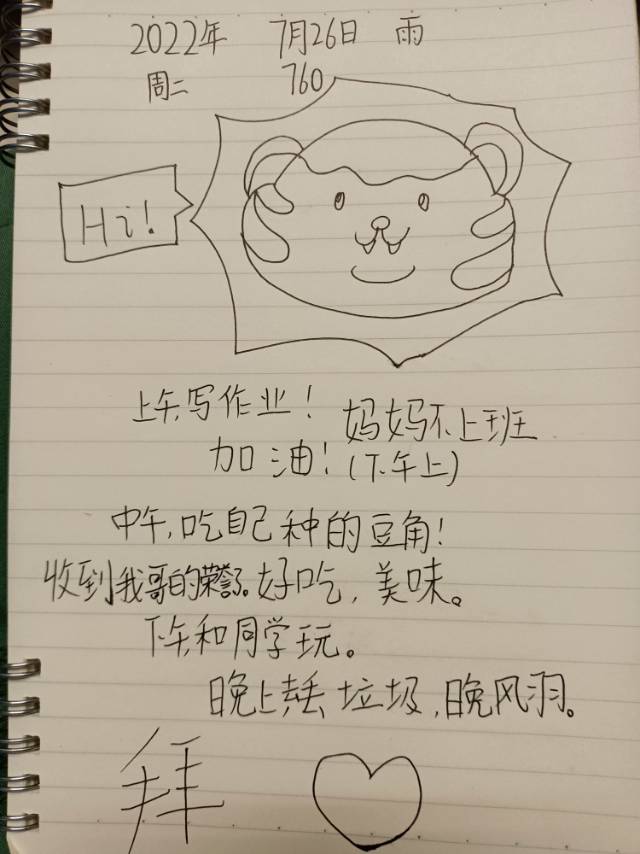 2022年 7月26日 雨
周二 760
Hi!
上午,写作业! 妈妈不上班
加油! (下午上)
中午,吃自己种的豆角!
收到我哥的荣誉了。好吃,美味。
下午,和同学玩。
晚上丢垃圾,晚风羽。
拜